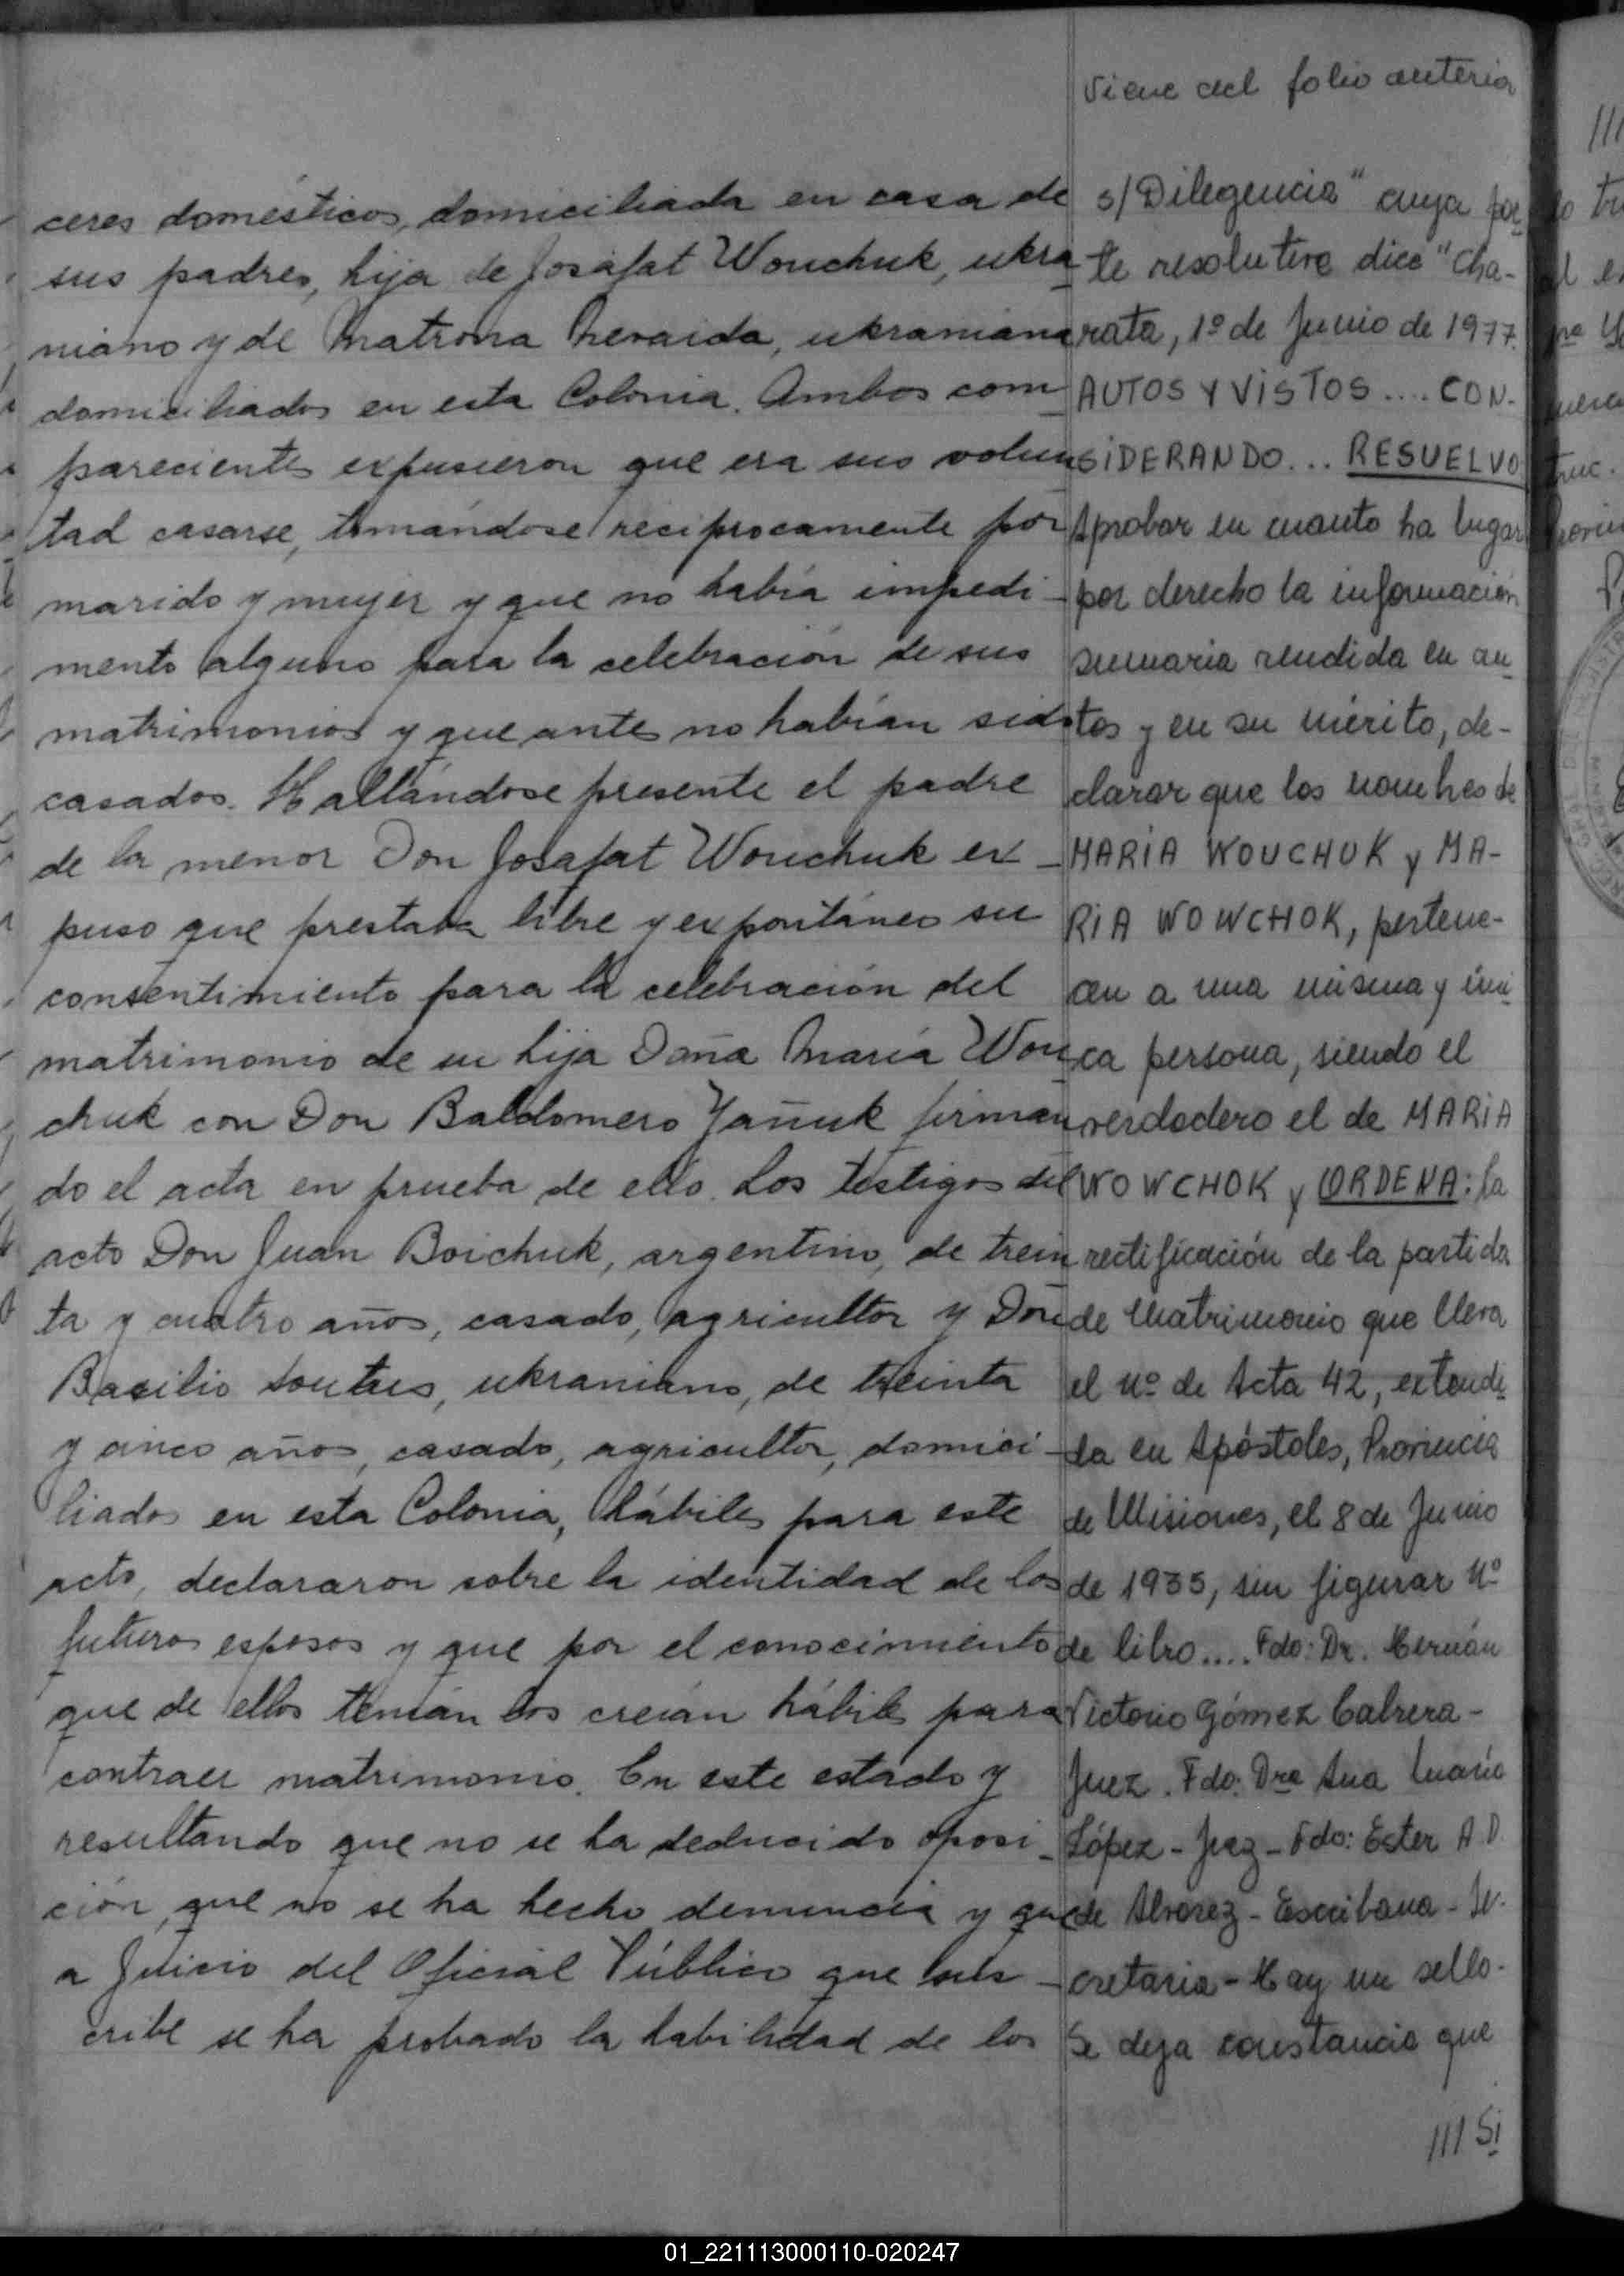 ceres domésticos, domiciliada en casa de
sus padres, hija de Josafat Wouchuk, ukra
niano y de Matrona Nevaida, ukraniana
domiciliados en esta Colonia. Ambos com
parecientes expusieron que era sus volun
tad casarse, tomándose reciprocamente por
marido y mujer y que no había impedi-
mento alguno para la celebración de sus
matrimonios y que antes no habían sido
casados. Hallándose presente el padre
de la menor Don Josafat Wouchuk ex-
puso que prestaba libre y expontáneo su
consentimiento para la celebración del
matrimonio de su hija Doña María Wou
chuk con Don Baldomero Yañuk firman
do el acta en prueba de ello. Los testigos del
acto Don Juan Boichuk, argentino, de trein
ta y cuatro años, casado, agricultor y Don
Basilio, ukraniano, de treinta
y cinco años, casado, agricultor, domici-
liados en esta Colonia, hábiles para este
acto, declararon sobre la identidad de los
futuros esposos y que por el conocimiento
que de ellos tenían los creían hábiles para
contraer matrimonio. En este estado y
resultando que no se ha deducido oposi-
ción, que no se ha hecho denuncia y que
a juicio del Oficial Público que subs-
cribe se ha probado la habilidad de los
Viene del folio anterior
s/Diligencia" cuya par
te resolutiva dice "Cha-
rata, 1º de Junio de 1977.
AUTOS Y VISTOS.... CON-
SIDERANDO... RESUELVO
Aprobar en cuanto ha lugar
por derecho la información
sumaria rendida en au
tos y en su mérito, de-
clarar que los nombres de
MARIA WOUCHUK y MA-
RIA WOWCHOK, pertene-
cen a una misma y úni
ca persona, siendo el
verdadero el de MARIA
WOWCHOK y ORDENA: la
rectificación de la partida
de Matrimonio que lleva
el nº de Acta 42, extendi
da en Apóstoles, Provincia
de Misiones, el 8 de Junio
de 1935, sin figurar Nº
de libro.... Fdo: Dr. Hernán
Victorio Gómez Cabrera-
Juez. Fdo: Dra Ana María
López - Juez - Fdo: Ester A. D.
de Alvarez - Escribana - Se-
cretaria - Hay un sello.
Se deja constancia que
///Si
01_221113000110-020247